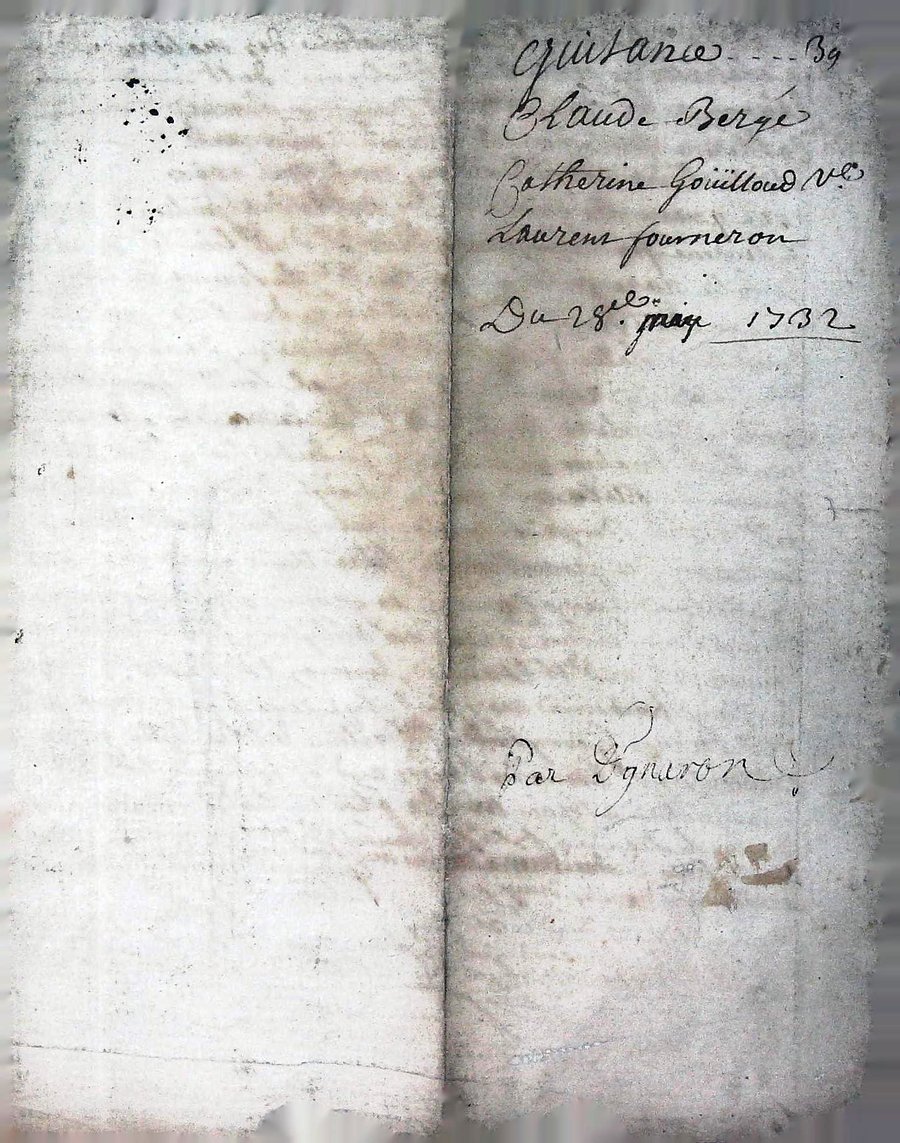 quitance .... 39
Claude Berge
Catherine Goüilloud ve.
Laurent fourneron
Du 28el. may 1732
Par Vgneron